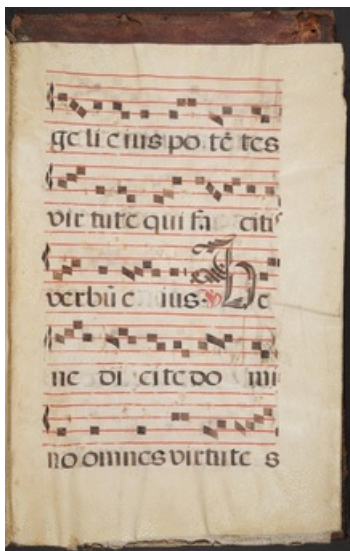 ge li e ius po tē tes
vir tute qui fa citis
verbū e ius. ℣ Be
ne di cite do mi
no omnes virtute s